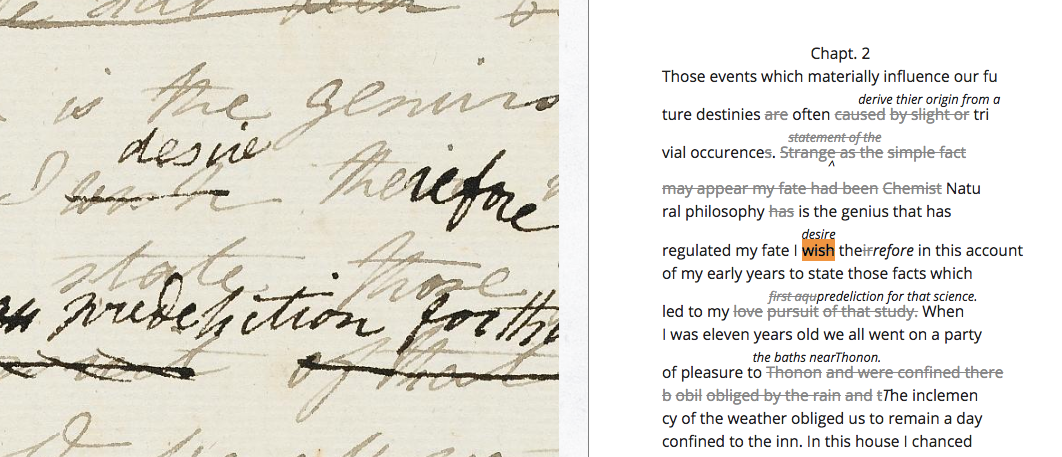 is the genius
desire
I wish therefore
state those
predeliction for th
of that
Chapt. 2
Those events which materially influence our fu
derive thier origin from a
ture destinies are often caused by slight or tri
statement of the
vial occurences. Strange as the simple fact
^
may appear my fate had been Chemist Natu
ral philosophy has is the genius that has
desire
regulated my fate I wish theirrefore in this account
of my early years to state those facts which
first aqupredeliction for that science.
led to my love pursuit of that study. When
I was eleven years old we all went on a party
the baths nearThonon.
of pleasure to Thonon and were confined there
b obil obliged by the rain and tThe inclemen
cy of the weather obliged us to remain a day
confined to the inn. In this house I chanced